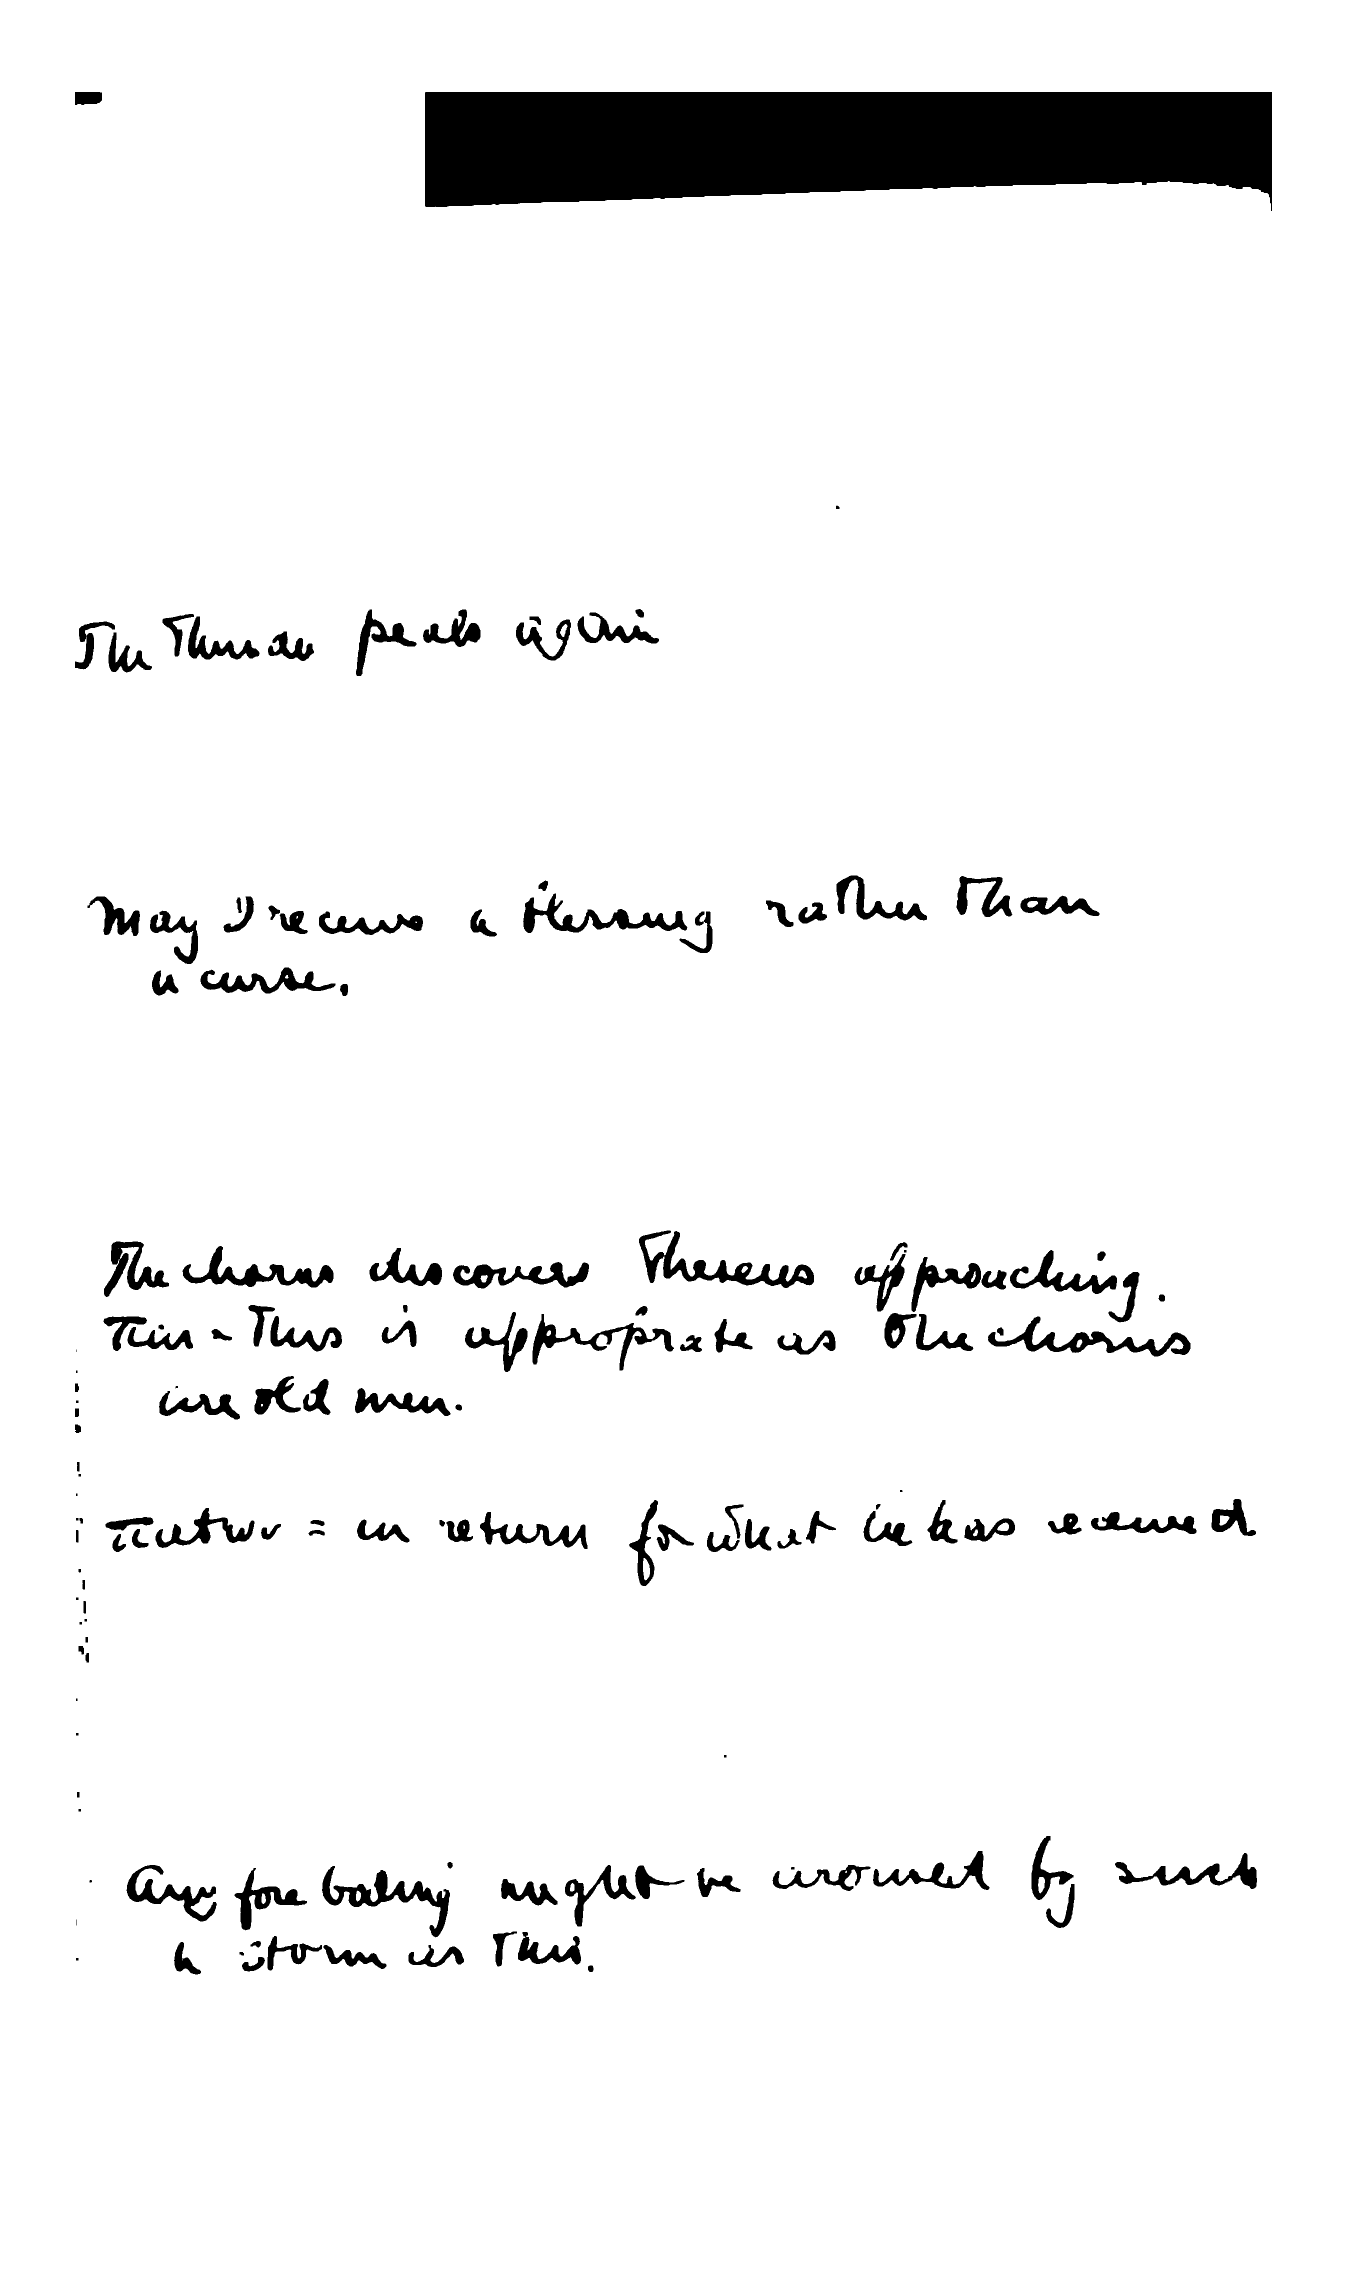 The Thunder peals again
May I receive a blessing rather than
a curse.
The chorus discovers Theseus approaching.
παῖ - This is appropriate as the chorus
are old men.
= in return for what he has received
Any foreboding might be aroused by such
a storm as this.